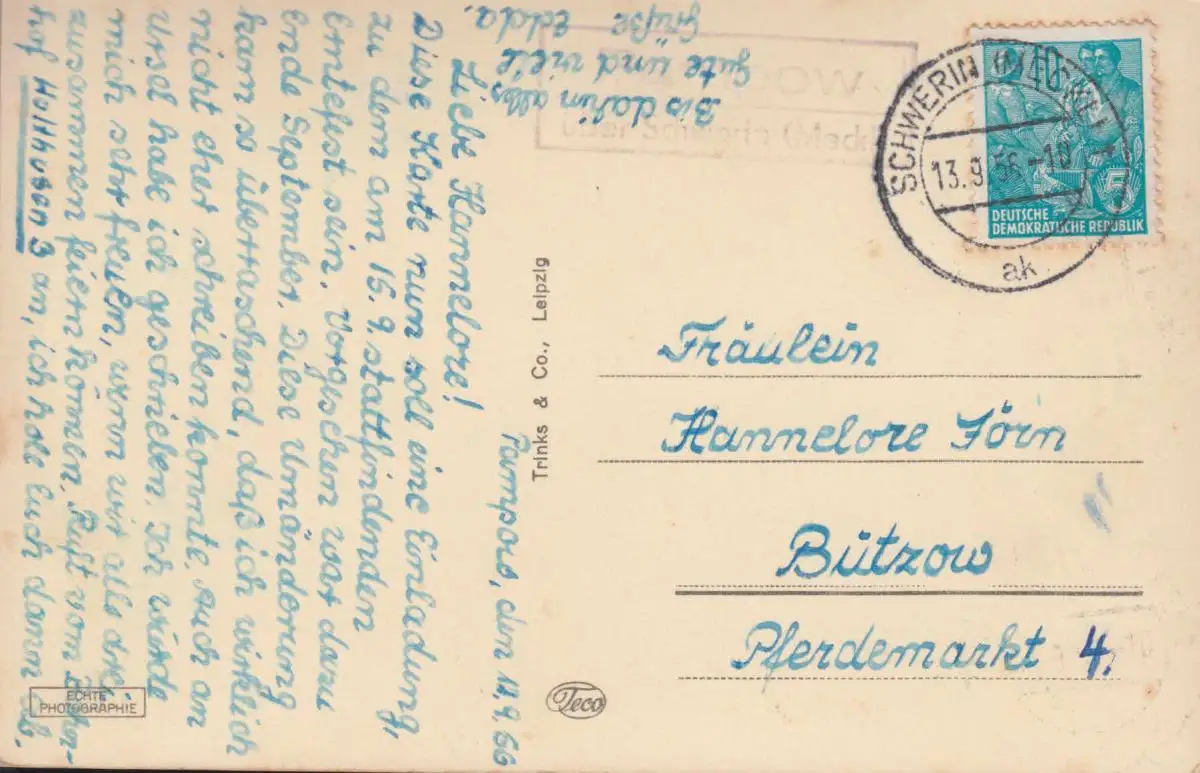 Pampow, den 12.9.56
Liebe Hannelore!
Diese Karte nun soll eine Einladung,
zu dem am 15.9. stattfindenden
Erntefest sein. Vorgesehen war dazu
ende September. Diese Umänderung
kam so überraschend, daß ich wirklich
nicht eher schreiben konnte. Auch an
Ursel habe ich geschrieben. Ich würde
mich sehr freuen, wenn wir alle drei
zusammen feiern können. Ruft vom
hof Holthusen 3 an, ich hole Euch dann ab.
Bis dahin alles
Gute und viele
Grüße Edda.
über Schwerin (Meckl
SCHWERIN (MECKL)
13.9.56-18
ak
DEUTSCHE
DEMOKRATISCHE REPUBLIK
Trinks & Co., Leipzig
Fräulein
Hannelore Förn
Bützow
Pferdemarkt 4.
ECHTE
PHOTOGRAPHIE
Teco